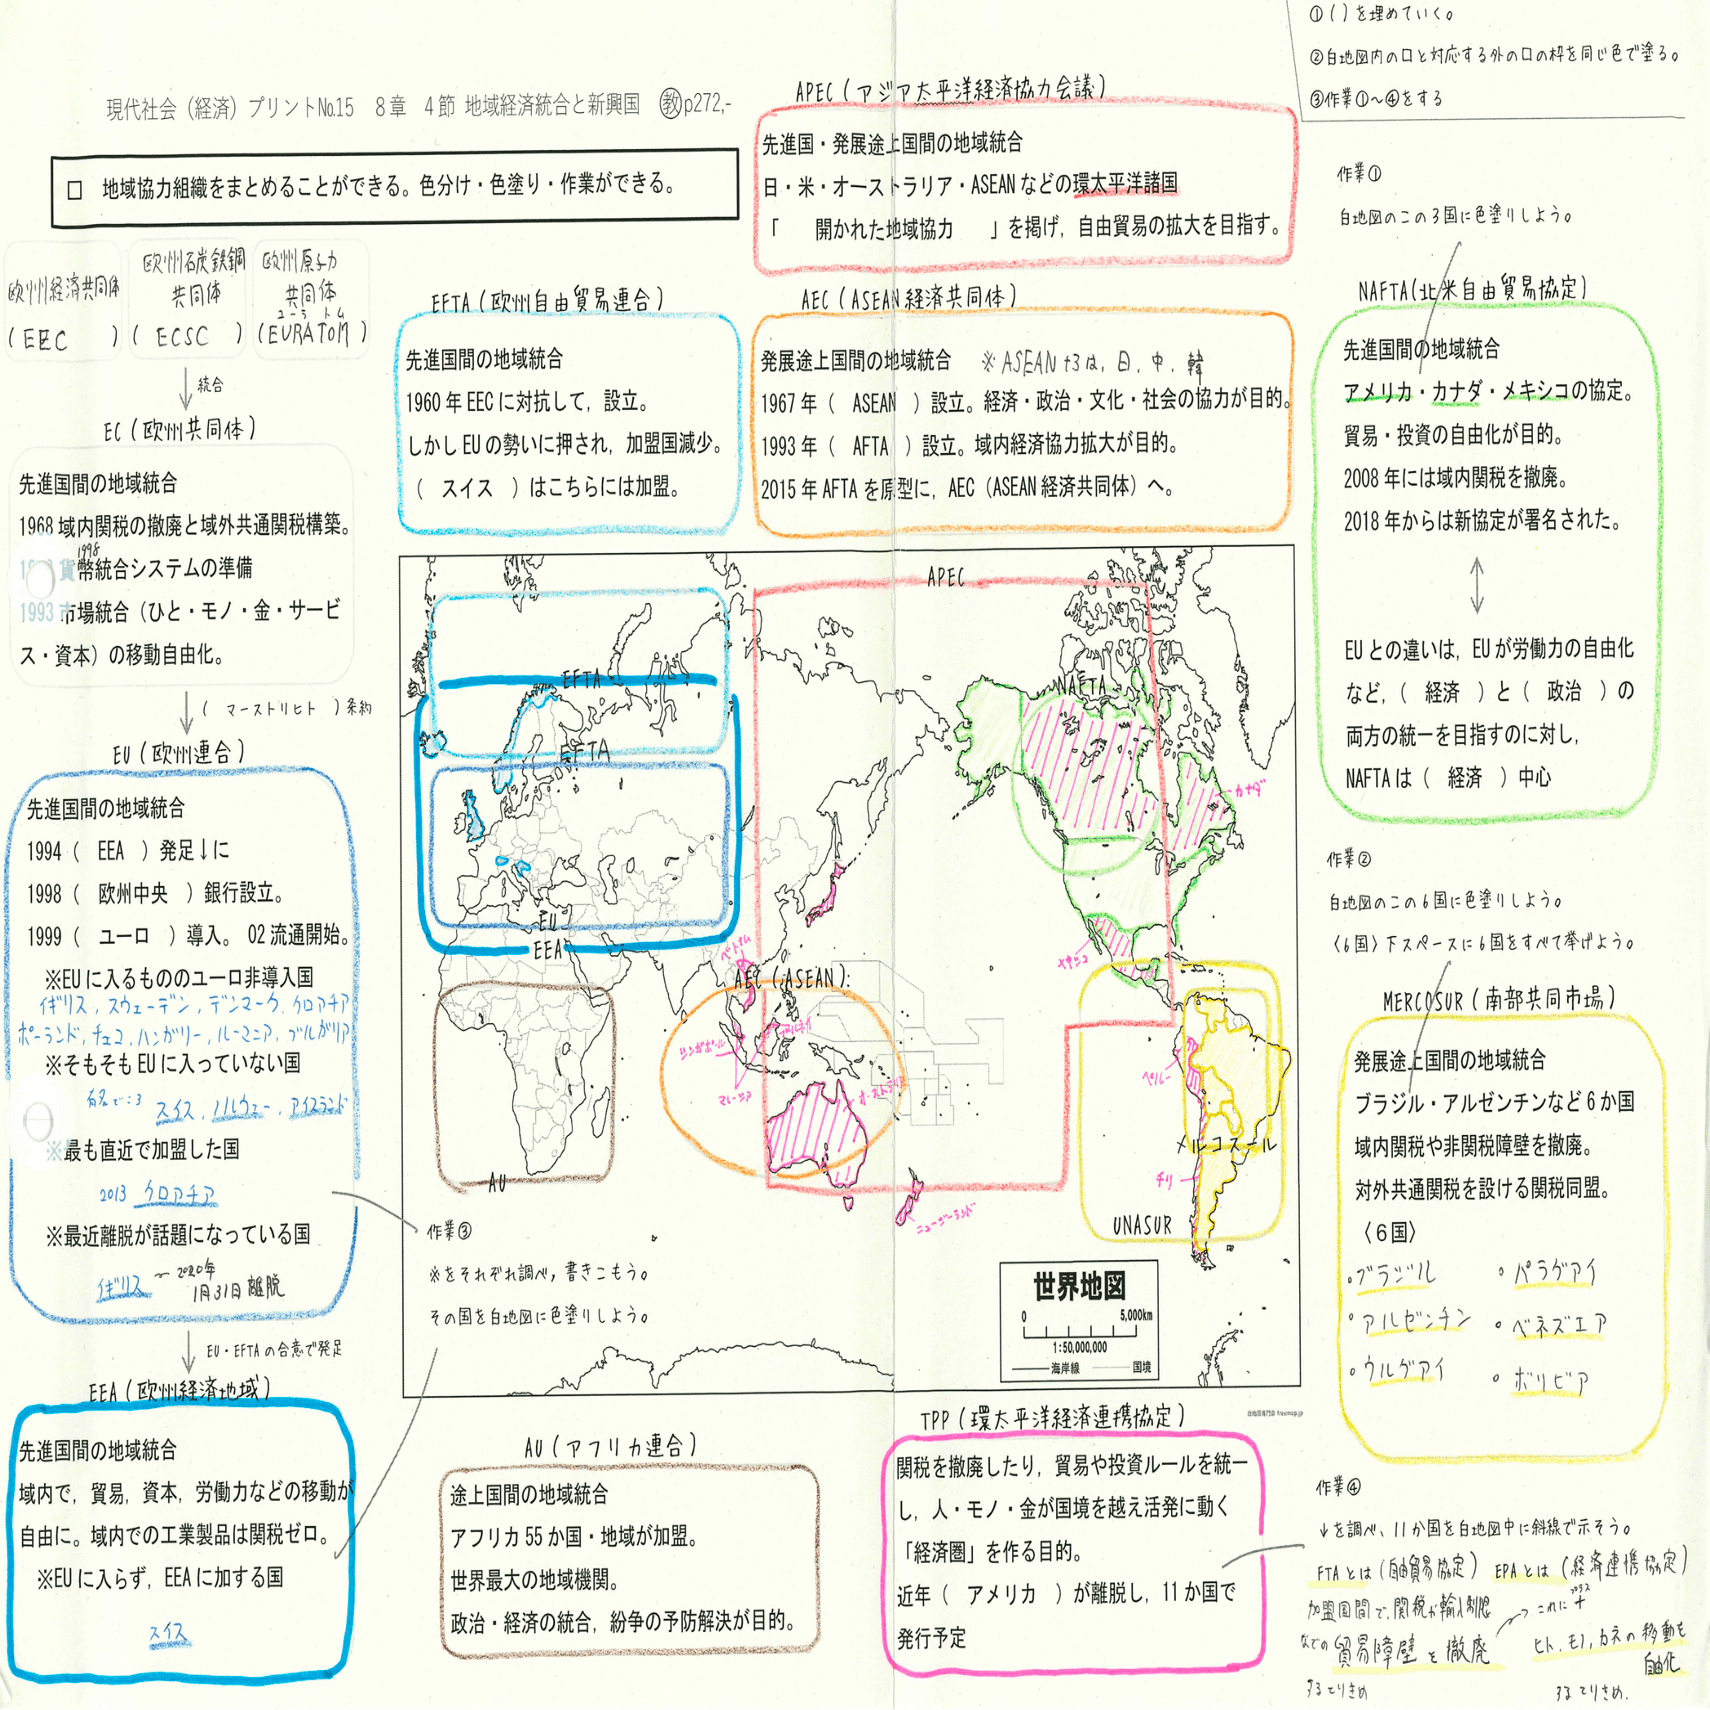 ①()を埋めていく。
②白地図内の口と対応する外の口の枠を同じ色で塗る。
③作業①〜④をする
現代社会（経済）プリント№15　８章　４節 地域経済統合と新興国　㊙p272,-
□　地域協力組織をまとめることができる。色分け・色塗り・作業ができる。
APEC（アジア太平洋経済協力会議）
先進国・発展途上国間の地域統合
日・米・オーストラリア・ASEANなどの環太平洋諸国
「　開かれた地域協力　」を掲げ，自由貿易の拡大を目指す。
欧州経済共同体
（EEC）
欧州石炭鉄鋼
共同体
（ECSC）
欧州原子力
共同体
ユーラトム
（EURATOM）
統合
EC（欧州共同体）
先進国間の地域統合
1968 域内関税の撤廃と域外共通関税構築。
1998
貨幣統合システムの準備
1993 市場統合（ひと・モノ・金・サービ
ス・資本）の移動自由化。
（マーストリヒト）条約
EU（欧州連合）
先進国間の地域統合
1994（　EEA　）発足↓に
1998（　欧州中央　）銀行設立。
1999（　ユーロ　）導入。 02 流通開始。
※EUに入るもののユーロ非導入国
イギリス，スウェーデン，デンマーク，クロアチア
ポーランド，チェコ，ハンガリー，ルーマニア，ブルガリア
※そもそもEUに入っていない国
有名で:3 スイス，ノルウェー，アイスランド
※最も直近で加盟した国
2013 クロアチア
※最近離脱が話題になっている国
イギリス ー 2020年
1月31日 離脱
EU・EFTAの合意で発足
EEA（欧州経済地域）
先進国間の地域統合
域内で，貿易，資本，労働力などの移動が
自由に。域内での工業製品は関税ゼロ。
※EUに入らず，EEAに加する国
スイス
EFTA（欧州自由貿易連合）
先進国間の地域統合
1960年EECに対抗して，設立。
しかしEUの勢いに押され，加盟国減少。
（　スイス　）はこちらには加盟。
AEC（ASEAN経済共同体）
発展途上国間の地域統合　※ASEAN+3は，日，中，韓
1967年（　ASEAN　）設立。経済・政治・文化・社会の協力が目的。
1993年（　AFTA　）設立。域内経済協力拡大が目的。
2015年AFTAを原型に，AEC（ASEAN経済共同体）へ。
作業①
白地図のこの３国に色塗りしよう。
NAFTA(北米自由貿易協定)
先進国間の地域統合
アメリカ・カナダ・メキシコの協定。
貿易・投資の自由化が目的。
2008年には域内関税を撤廃。
2018年からは新協定が署名された。
EUとの違いは，EUが労働力の自由化
など，（　経済　）と（　政治　）の
両方の統一を目指すのに対し，
NAFTAは（　経済　）中心
作業②
白地図のこの６国に色塗りしよう。
〈６国〉下スペースに６国をすべて挙げよう。
MERCOSUR（南部共同市場）
発展途上国間の地域統合
ブラジル・アルゼンチンなど6か国
域内関税や非関税障壁を撤廃。
対外共通関税を設ける関税同盟。
〈６国〉
・ブラジル　・パラグアイ
・アルゼンチン　・ベネズエア
・ウルグアイ　・ボリビア
APEC
EFTA
NAFTA
EFTA
カナダ
EU
EEA
ベトナム
AEC(ASEAN):
メキシコ
ブルネイ
シンガポール
マレーシア
オーストラリア
ペルー
メルコスール
チリ
AU
ニュージーランド
UNASUR
作業③
※をそれぞれ調べ，書きこもう。
その国を白地図に色塗りしよう。
世界地図
0　5,000km
1:50,000,000
海岸線　国境
白地図専門店 freemap.jp
AU（アフリカ連合）
途上国間の地域統合
アフリカ55か国・地域が加盟。
世界最大の地域機関。
政治・経済の統合，紛争の予防解決が目的。
TPP（環太平洋経済連携協定）
関税を撤廃したり，貿易や投資ルールを統一
し，人・モノ・金が国境を越え活発に動く
「経済圏」を作る目的。
近年（　アメリカ　）が離脱し，11か国で
発行予定
作業④
↓を調べ、11か国を白地図中に斜線で示そう。
FTAとは（自由貿易協定）　EPAとは（経済連携協定）
加盟国間で，関税や輸入制限
などの貿易障壁を撤廃
するとりきめ
プラス
これに＋
ヒト，モノ，カネの移動も
自由化
するとりきめ．